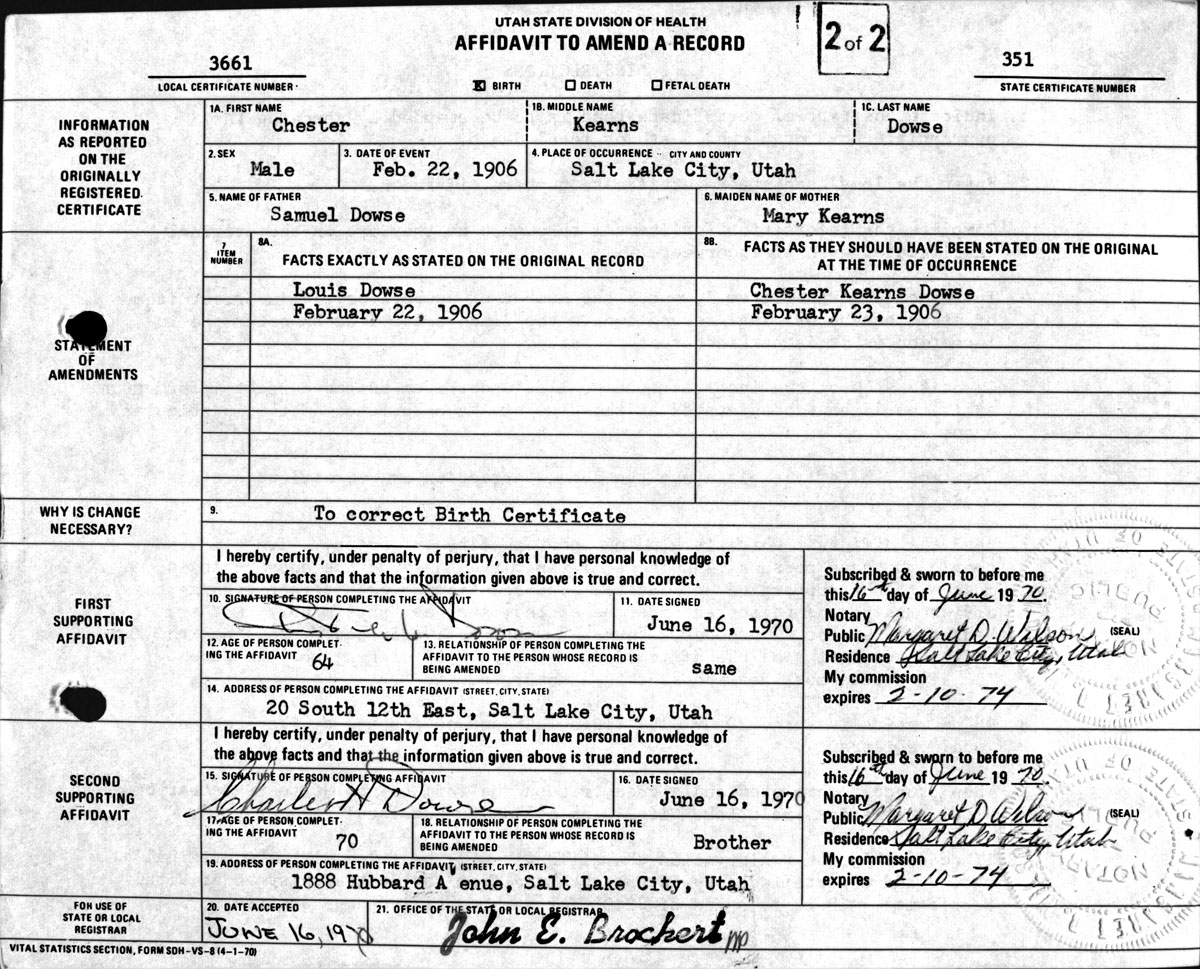 UTAH STATE DIVISION OF HEALTH
AFFIDAVIT TO AMEND A RECORD
2 of 2
3661
LOCAL CERTIFICATE NUMBER
351
STATE CERTIFICATE NUMBER
☒ BIRTH ☐ DEATH ☐ FETAL DEATH
INFORMATION AS REPORTED ON THE ORIGINALLY REGISTERED CERTIFICATE
1A. FIRST NAME 1B. MIDDLE NAME 1C. LAST NAME
Chester Kearns Dowse
2. SEX 3. DATE OF EVENT 4. PLACE OF OCCURRENCE - CITY AND COUNTY
Male Feb. 22, 1906 Salt Lake City, Utah
5. NAME OF FATHER 6. MAIDEN NAME OF MOTHER
Samuel Dowse Mary Kearns
STATEMENT OF AMENDMENTS
7 ITEM NUMBER
8A. FACTS EXACTLY AS STATED ON THE ORIGINAL RECORD
8B. FACTS AS THEY SHOULD HAVE BEEN STATED ON THE ORIGINAL
AT THE TIME OF OCCURRENCE
Louis Dowse Chester Kearns Dowse
February 22, 1906 February 23, 1906
WHY IS CHANGE NECESSARY?
9. To correct Birth Certificate
FIRST SUPPORTING AFFIDAVIT
I hereby certify, under penalty of perjury, that I have personal knowledge of
the above facts and that the information given above is true and correct.
10. SIGNATURE OF PERSON COMPLETING THE AFFIDAVIT
11. DATE SIGNED
June 16, 1970
12. AGE OF PERSON COMPLET-
ING THE AFFIDAVIT 64
13. RELATIONSHIP OF PERSON COMPLETING THE
AFFIDAVIT TO THE PERSON WHOSE RECORD IS
BEING AMENDED same
14. ADDRESS OF PERSON COMPLETING THE AFFIDAVIT (STREET, CITY, STATE)
20 South 12th East, Salt Lake City, Utah
Subscribed & sworn to before me
this 16th day of June 1970.
Notary
Public Margaret D. Wilson (SEAL)
Residence Salt Lake City, Utah
My commission
expires 2-10-74
SECOND SUPPORTING AFFIDAVIT
I hereby certify, under penalty of perjury, that I have personal knowledge of
the above facts and that the information given above is true and correct.
15. SIGNATURE OF PERSON COMPLETING AFFIDAVIT
Charles H Dowse
16. DATE SIGNED
June 16, 1970
17. AGE OF PERSON COMPLET-
ING THE AFFIDAVIT 70
18. RELATIONSHIP OF PERSON COMPLETING THE
AFFIDAVIT TO THE PERSON WHOSE RECORD IS
BEING AMENDED Brother
19. ADDRESS OF PERSON COMPLETING THE AFFIDAVIT (STREET, CITY, STATE)
1888 Hubbard Avenue, Salt Lake City, Utah
Subscribed & sworn to before me
this 16th day of June 1970
Notary
Public Margaret D. Wilson (SEAL)
Residence Salt Lake City, Utah
My commission
expires 2-10-74
FOR USE OF STATE OR LOCAL REGISTRAR
20. DATE ACCEPTED
JUNE 16, 1970
21. OFFICE OF THE STATE OR LOCAL REGISTRAR
John E. Brockert
VITAL STATISTICS SECTION, FORM SDH-VS-8 (4-1-70)